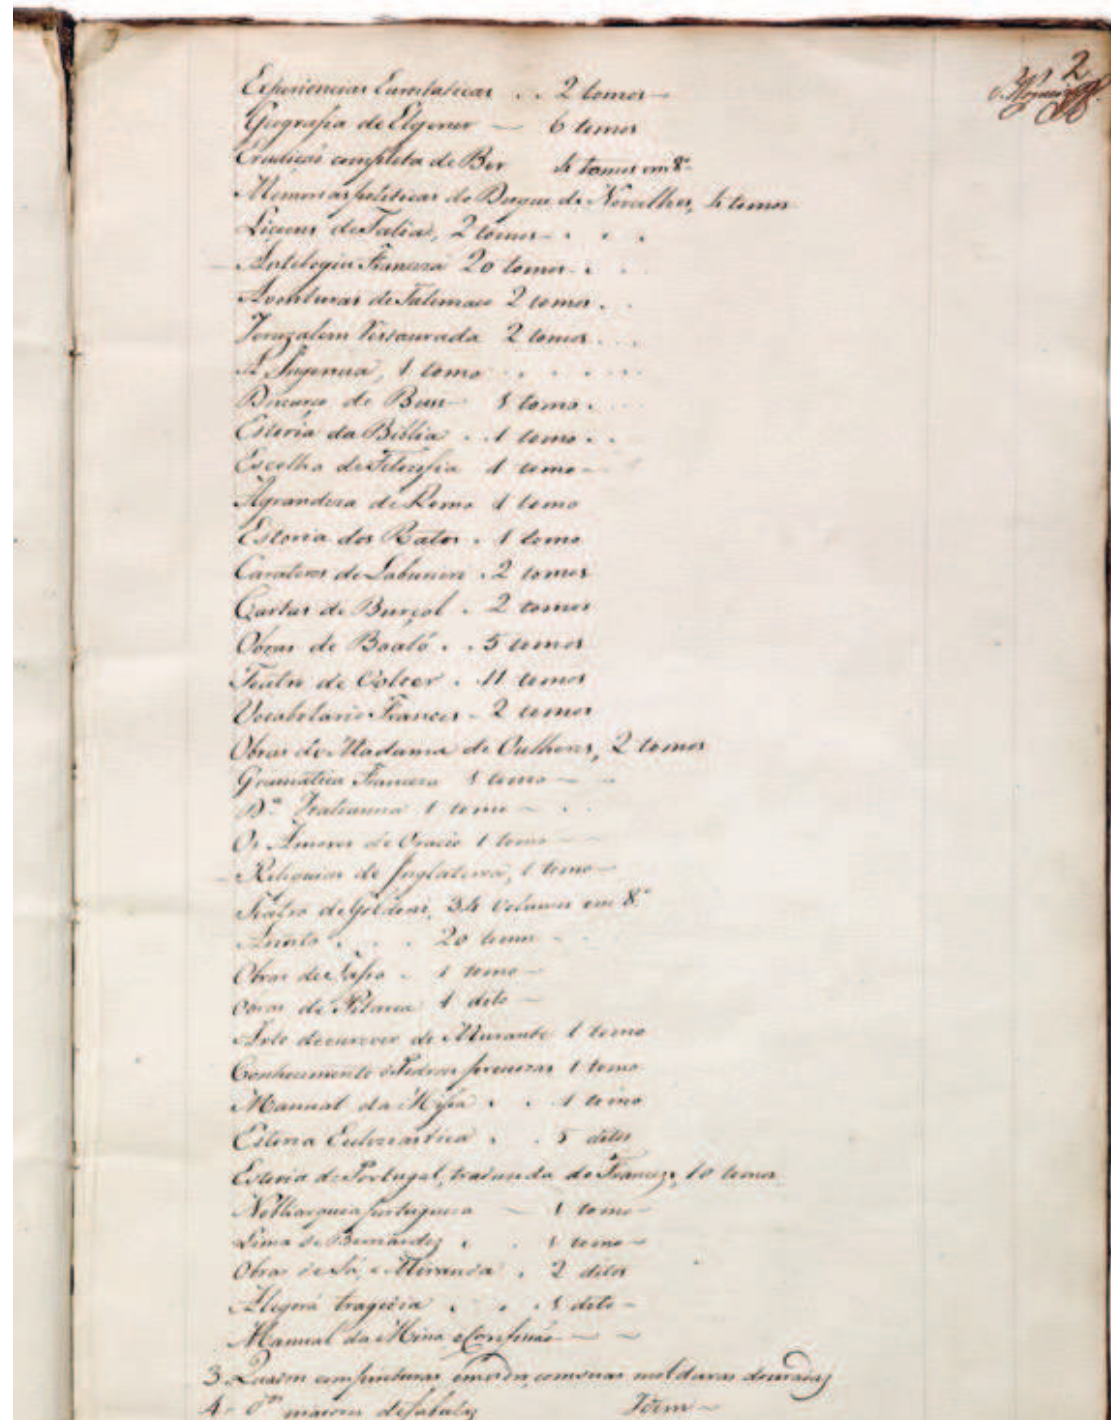 2
Experiencias Eurostaticas . . 2 tomos
Geografia de Elgener — 6 tomos
Erudição completa de Ber 4 tomos em 8º
Memorias politicas do Duque de Novalhes, 4 tomos
Liçoens de Talia, 2 tomos
Antelogia Franceza 20 tomos
Aventuras de Talemaco 2 tomos
Jeruzalem Restaurada 2 tomos
A 1 tomo
Discurso de 1 tomo
Estoria da Biblia . . 1 tomo . .
Escolha de Filozofia 1 tomo
Agrandeza de Roma 1 tomo
Estoria dos . 1 tomo
Carateres de Labruner . 2 tomos
Cartas de . 2 tomos
Obras de Boaló . . 5 tomos
Teatro de Volter . 11 tomos
Vocabolario Frances - 2 tomos
Obras de Madama de Culheres, 2 tomos
Gramatica Franceza 1 tomo
Dª Italianna 1 tomo
Os Amores de Oracio 1 tomo
Reliquias de Inglaterra, 1 tomo
Teatro de Goldoni, 34 volumes em 8º
20 tomos
Obras de Taso - 1 tomo
Obras de 1 dito
Arte de escrever de Murante 1 tomo
Conhecimento de Pedras preciozas 1 tomo
Manual da Missa . . 1 tomo
Estoria Ecleziastica . . 5 ditos
Estoria de Portugal, traduzida do Francez, 10 tomos
Nobliarquia portugueza — 1 tomo
Lima de Bernardez . . 1 tomo
Obras de Sá, e Miranda . 2 ditos
tragedia . . . 1 dito
Manual da Missa e Confissão
3 com pinturas, com suas molduras douradas
4 - dos maiores Idem